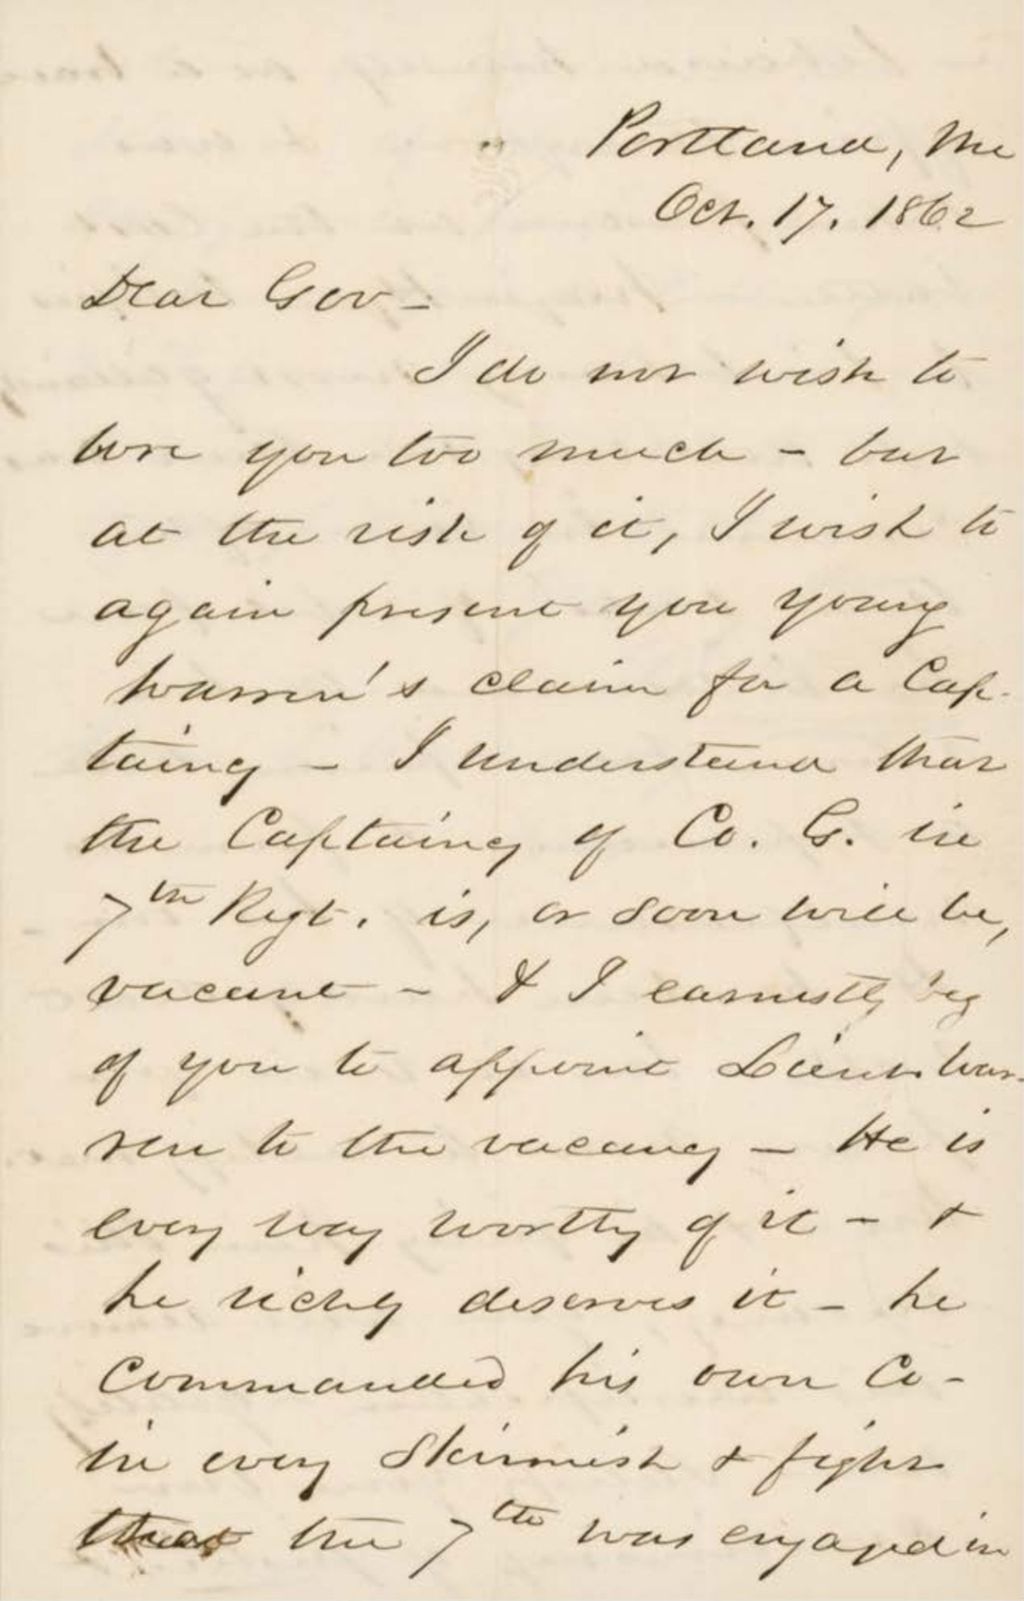 Portland, Me
Oct. 17. 1862
Dear Gov -
I do not wish to
bore you too much - but
at the risk of it, I wish to
again present you young
Warren's claim for a Cap-
taincy - I understand that
the Captaincy of Co. G. in
7th Regt. is, or soon will be,
vacant - & I earnestly beg
of you to appoint Lieut. War-
ren to the vacancy - He is
every way worthy of it - &
he richly deserves it - he
commanded his own Co -
in every skirmish & fight
that the 7th was engaged in